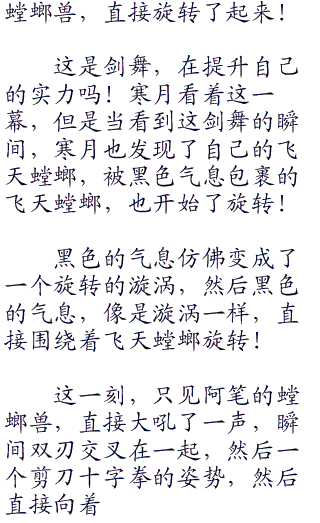 螳螂兽，直接旋转了起来！
这是剑舞，在提升自己
的实力吗！寒月看着这一
幕，但是当看到这剑舞的瞬
间，寒月也发现了自己的飞
天螳螂，被黑色气息包裹的
飞天螳螂，也开始了旋转！
黑色的气息仿佛变成了
一个旋转的漩涡，然后黑色
的气息，像是漩涡一样，直
接围绕着飞天螳螂旋转！
这一刻，只见阿笔的螳
螂兽，直接大吼了一声，瞬
间双刃交叉在一起，然后一
个剪刀十字拳的姿势，然后
直接向着